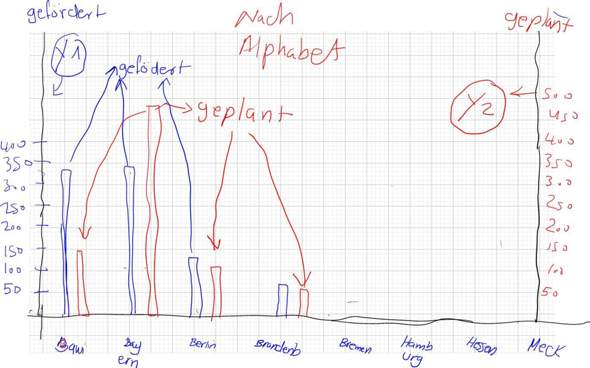 gefördert
Nach
AlphabeT
geplant
Y1
gefödert
geplant
Y2
400
350
300
250
200
150
100
50
500
450
400
350
300
250
200
150
100
50
Bay
ern
Berlin
Brandenb
Bremen
Hamb
urg
Hessen
Meck